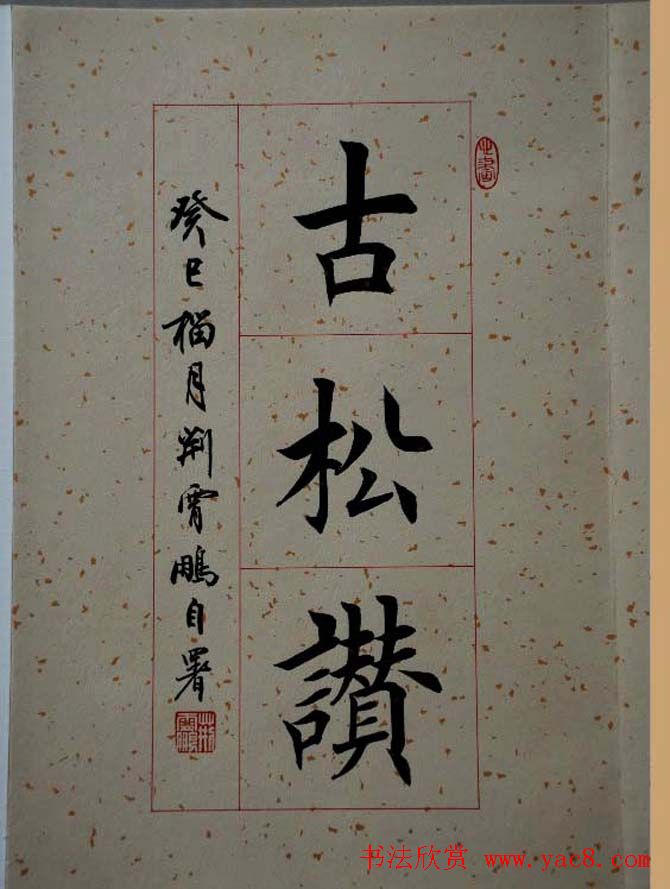 古松讃
癸巳榴月荆霄鵬自署
书法欣赏 www.yac8.com